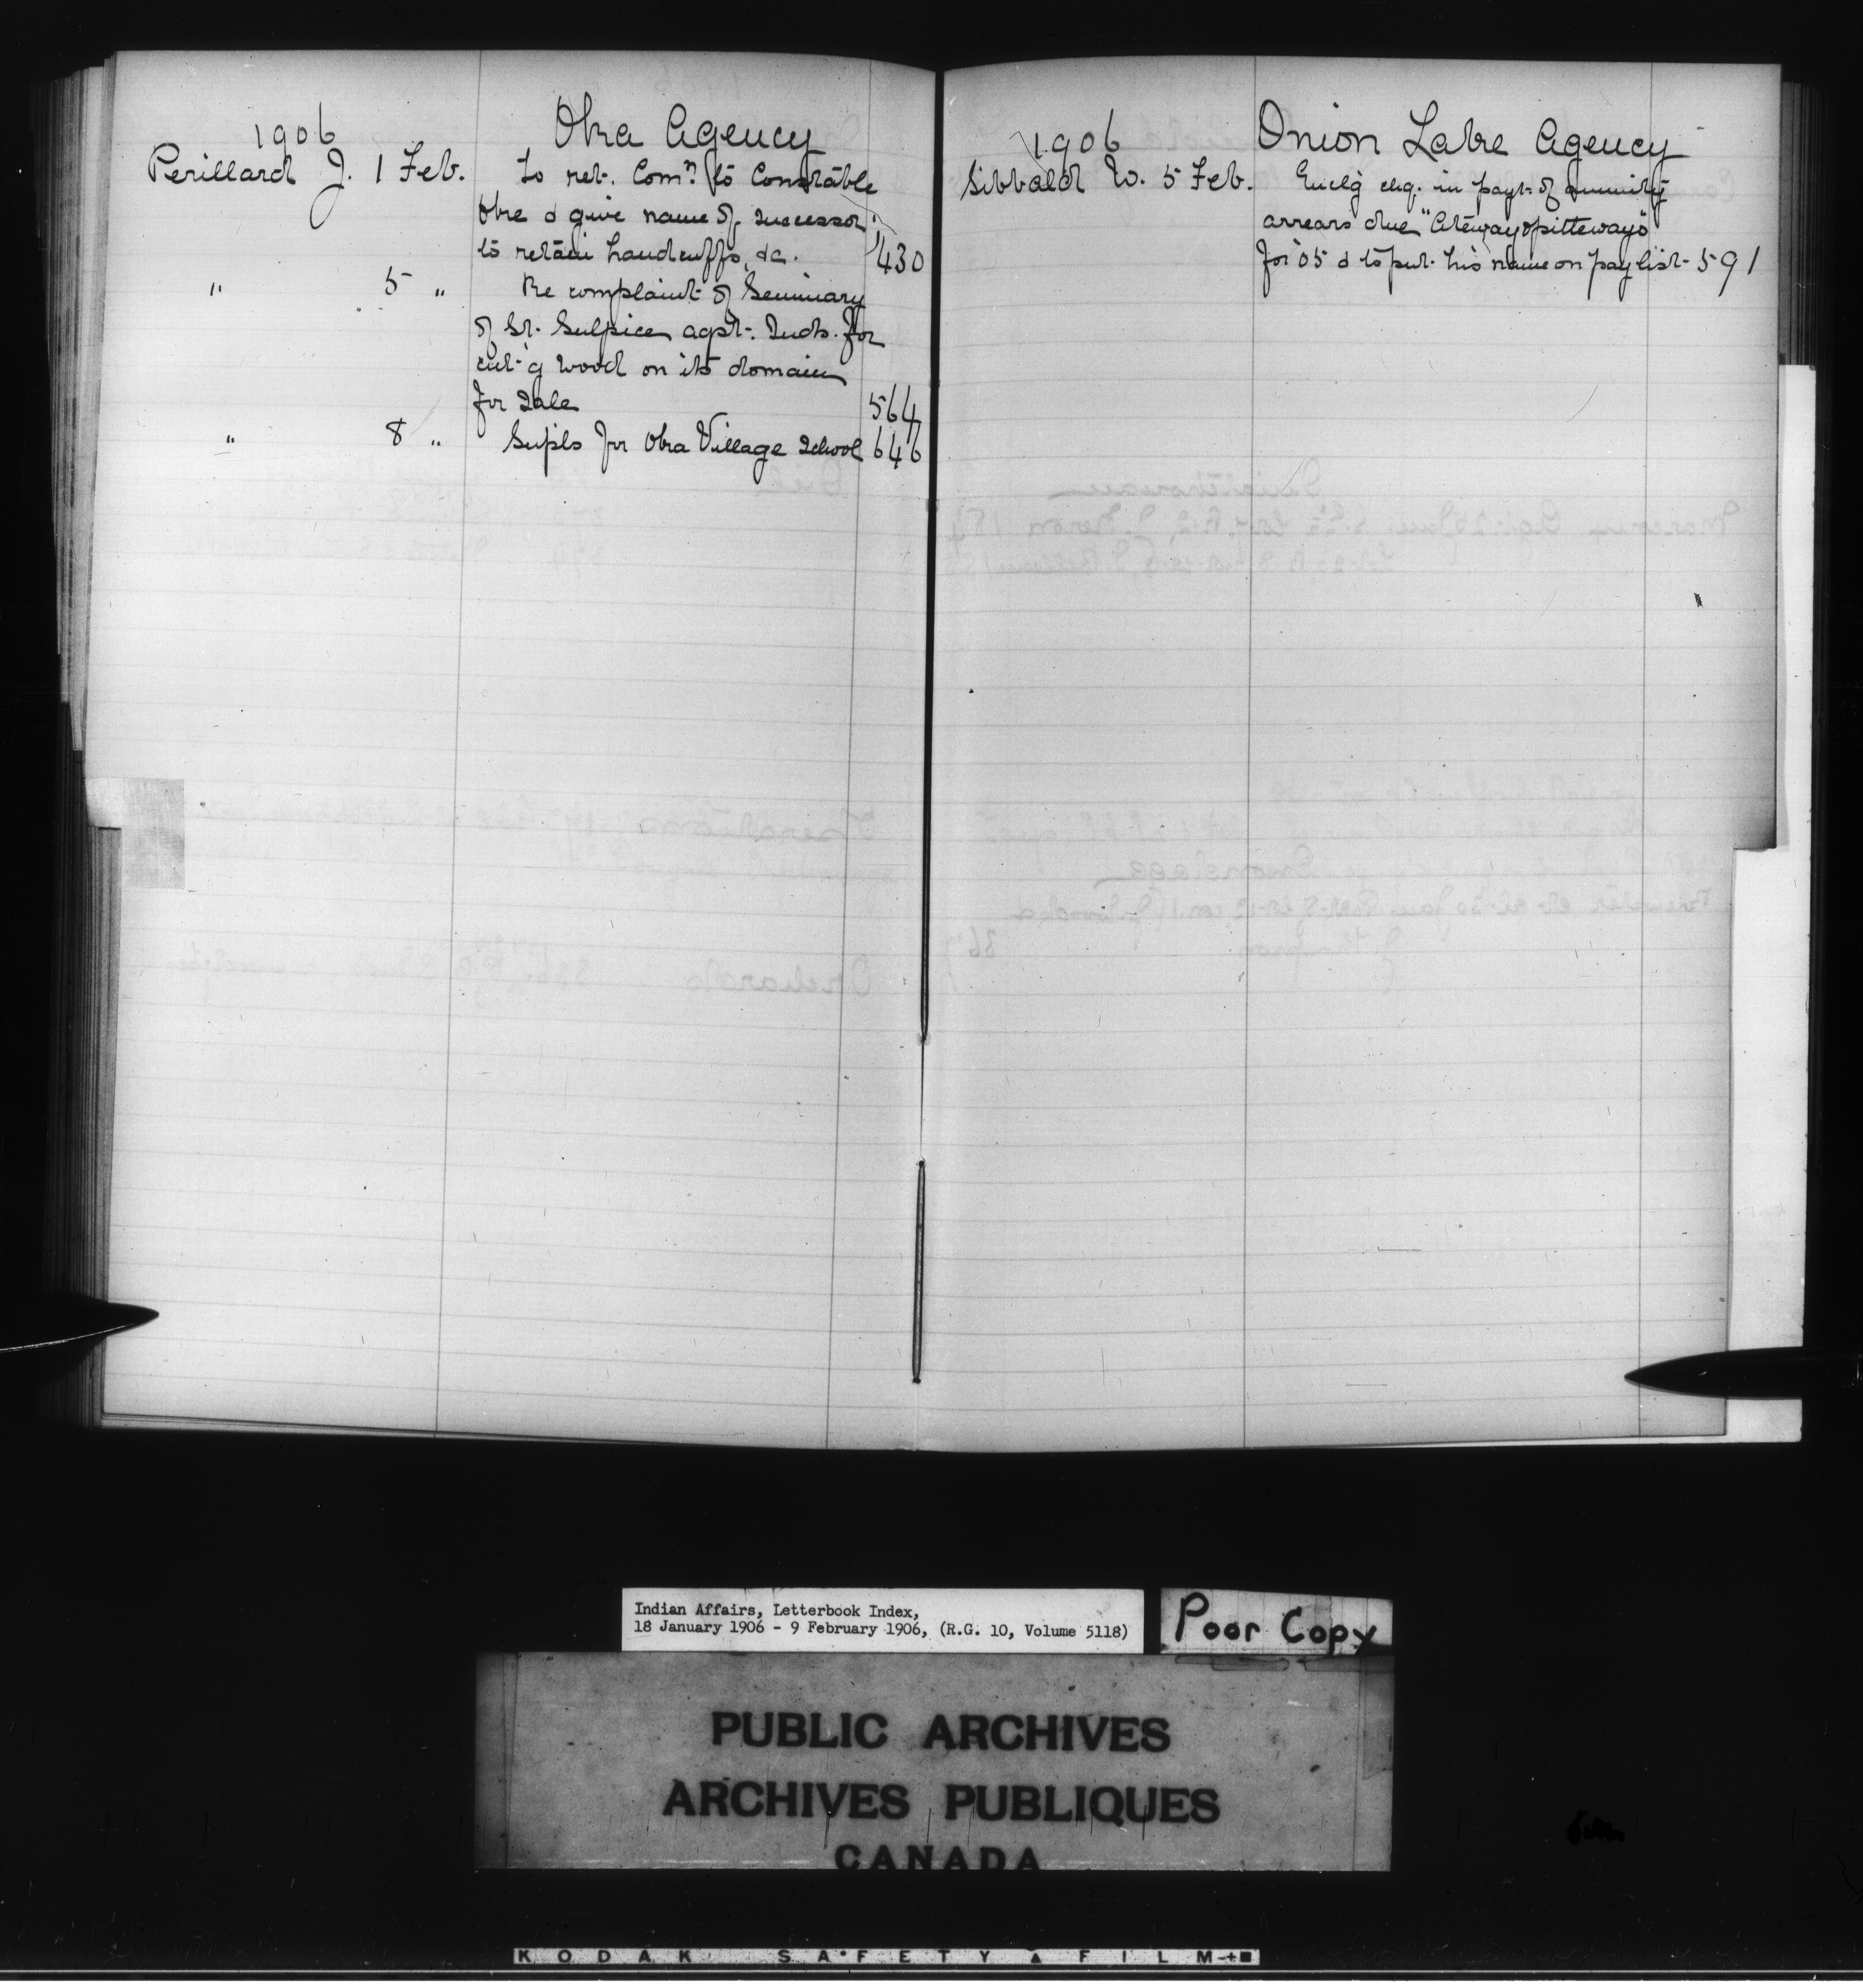 1906 Oka Agency
Perillard J. 1 Feb. To ret. Comn. to Constable
Oke & give name of successor;
to retain handcuffs, &c. 430
" 5 " Re complaint of Seminary
of St. Sulpice agst. Inds. for
cut'g wood on its domain
for sale 564
" 8 " Supls for Oka Village School 646
1906 Onion Lake Agency
Sibbald W. 5 Feb. Encl'g chq. in payt. of annuity
arrears due "Atewayopitteways"
for '05 & to put his name on paylist 591
Indian Affairs, Letterbook Index,
18 January 1906 - 9 February 1906, (R.G. 10, Volume 5118)
Poor Copy
PUBLIC ARCHIVES
ARCHIVES PUBLIQUES
CANADA
KODAK SAFETY FILM